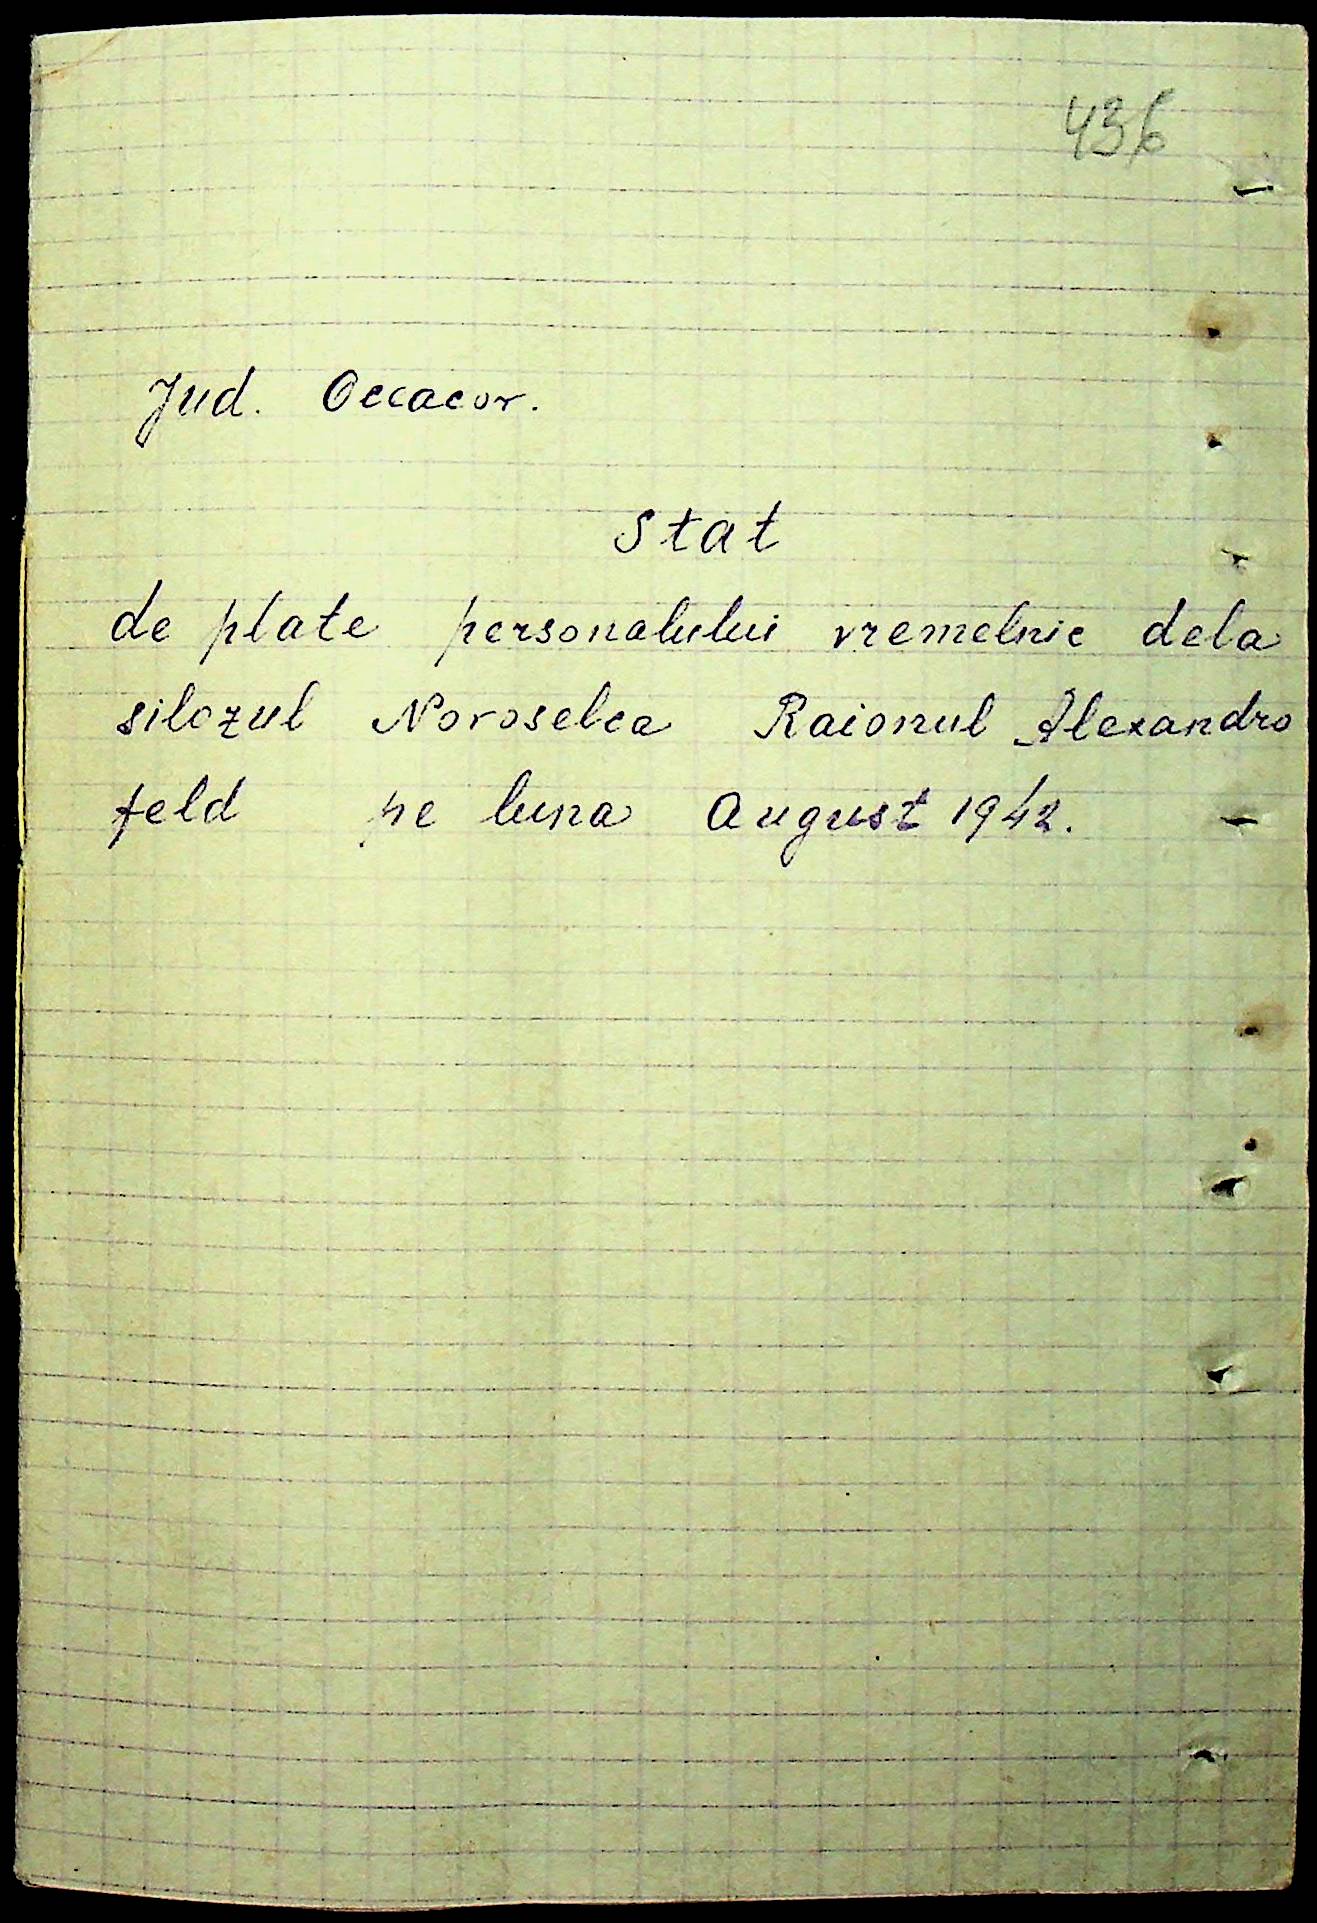 436
Jud. Occacov.
Stat
de plate personalului vremelnic dela
silozul Novoselca Raionul Alexandro
feld pe luna August 1942.